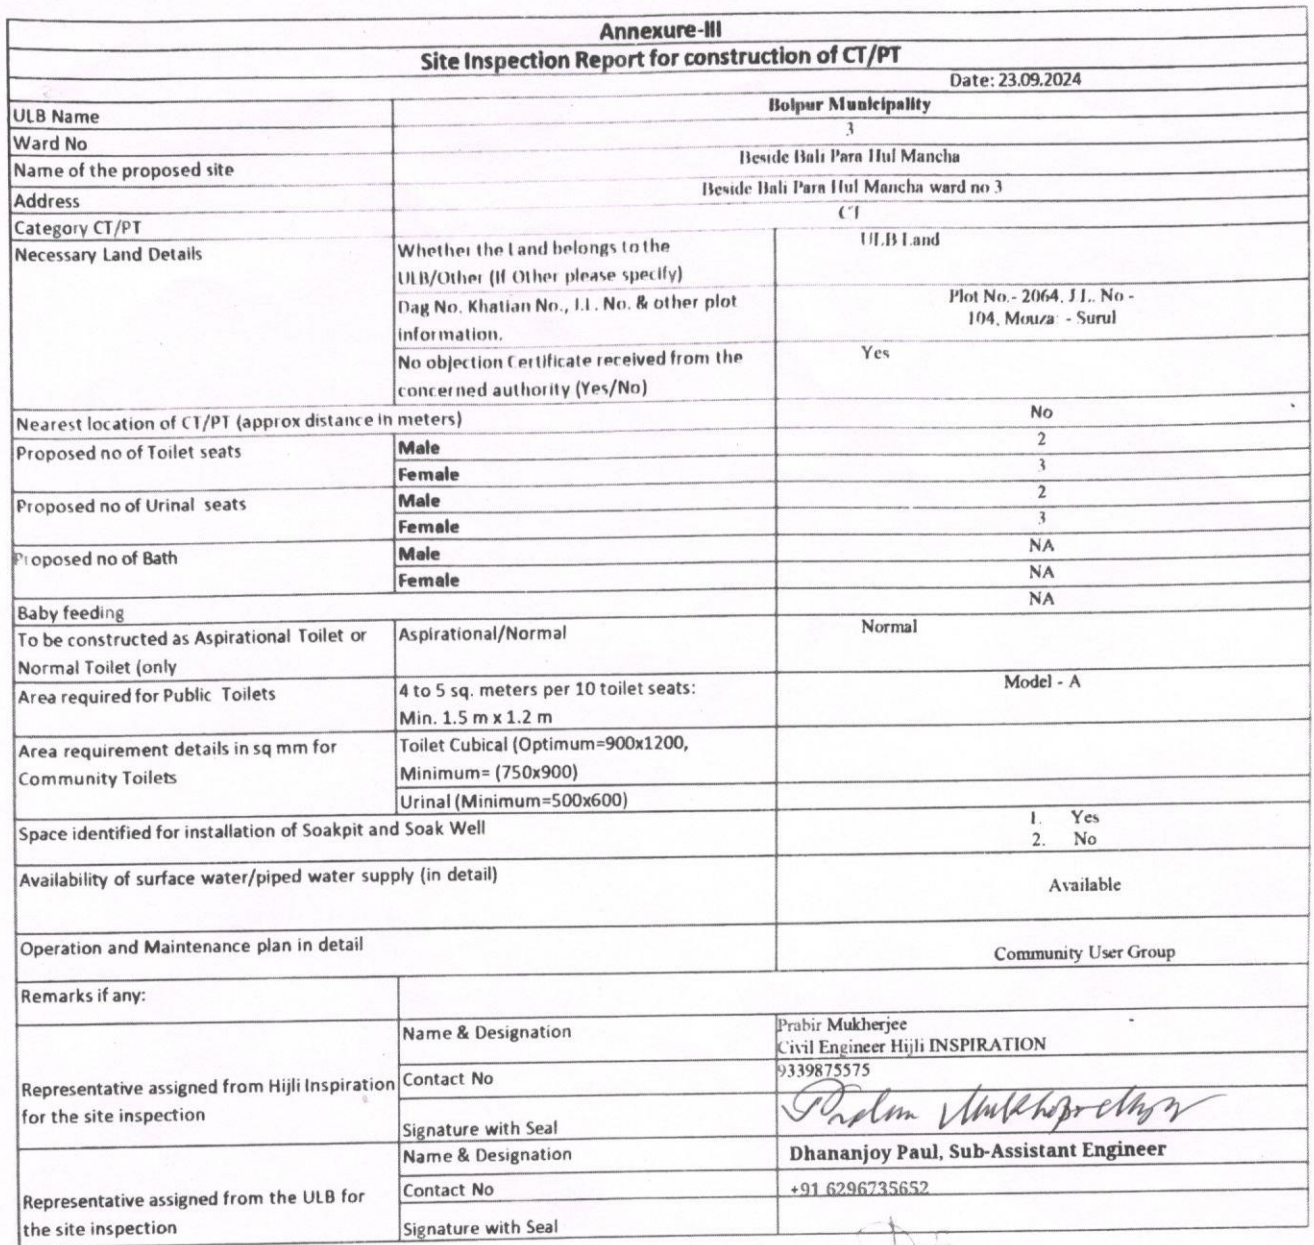 Annexure-III
Site Inspection Report for construction of CT/PT
Date: 23.09.2024
ULB Name
Bolpur Municipality
Ward No
3
Name of the proposed site
Beside Bali Para Hul Mancha
Address
Beside Bali Para Hul Mancha ward no 3
Category CT/PT
CT
Necessary Land Details
Whether the Land belongs to the
ULB/Other (If Other please specify)
ULB Land
Dag No. Khatian No., J.L. No. & other plot
information.
Plot No.- 2064, J.L. No -
104, Mouza: - Surul
No objection Certificate received from the
concerned authority (Yes/No)
Yes
Nearest location of CT/PT (approx distance in meters)
No
Proposed no of Toilet seats
Male
2
Female
3
Proposed no of Urinal seats
Male
2
Female
3
Proposed no of Bath
Male
NA
Female
NA
Baby feeding
NA
To be constructed as Aspirational Toilet or
Normal Toilet (only
Aspirational/Normal
Normal
Area required for Public Toilets
4 to 5 sq. meters per 10 toilet seats:
Min. 1.5 m x 1.2 m
Model - A
Area requirement details in sq mm for
Community Toilets
Toilet Cubical (Optimum=900x1200,
Minimum= (750x900)
Urinal (Minimum=500x600)
Space identified for installation of Soakpit and Soak Well
1. Yes
2. No
Availability of surface water/piped water supply (in detail)
Available
Operation and Maintenance plan in detail
Community User Group
Remarks if any:
Representative assigned from Hijli Inspiration
for the site inspection
Name & Designation
Prabir Mukherjee
Civil Engineer Hijli INSPIRATION
Contact No
9339875575
Signature with Seal
Representative assigned from the ULB for
the site inspection
Name & Designation
Dhananjoy Paul, Sub-Assistant Engineer
Contact No
+91 6296735652
Signature with Seal